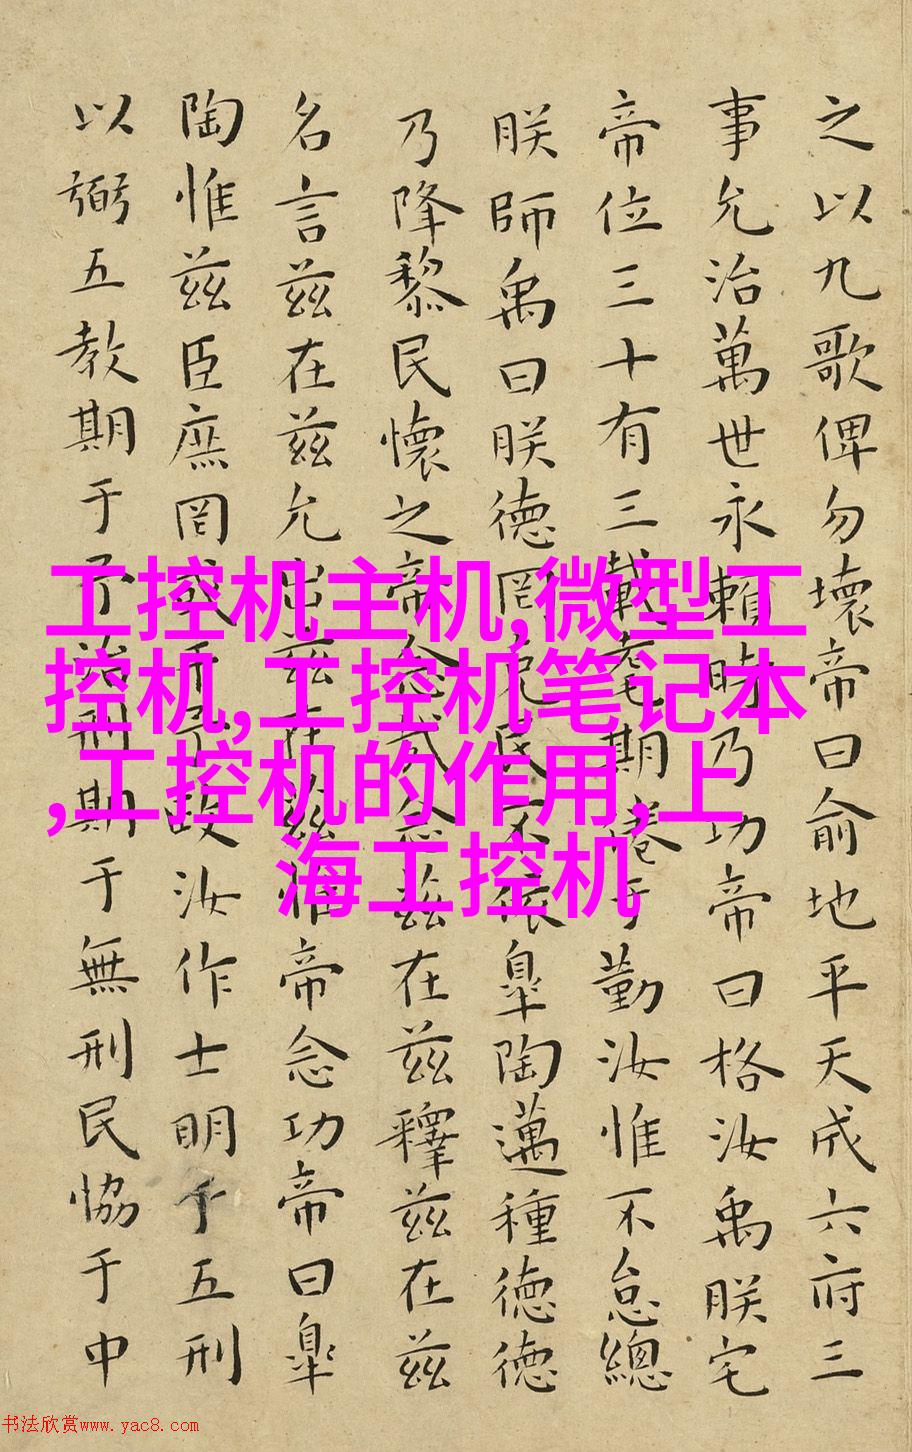 之以九歌俾勿壞帝曰俞地平天成六府三
事允治萬世永賴時乃功帝曰格汝禹朕宅
帝位三十有三載耄期倦于勤汝惟不怠總
朕師禹曰朕德罔克民不依皐陶邁種德德
乃降黎民懷之帝念哉念茲在茲釋茲在茲
名言茲在茲允出茲在茲惟帝念功帝曰皐
陶惟茲臣庶罔或干予政汝作士明于五刑
以弼五教期于予治刑期于無刑民協于中
工控机主机,微型工
控机,工控机笔记本
,工控机的作用,上
海工控机
书法欣赏www.yac8.com